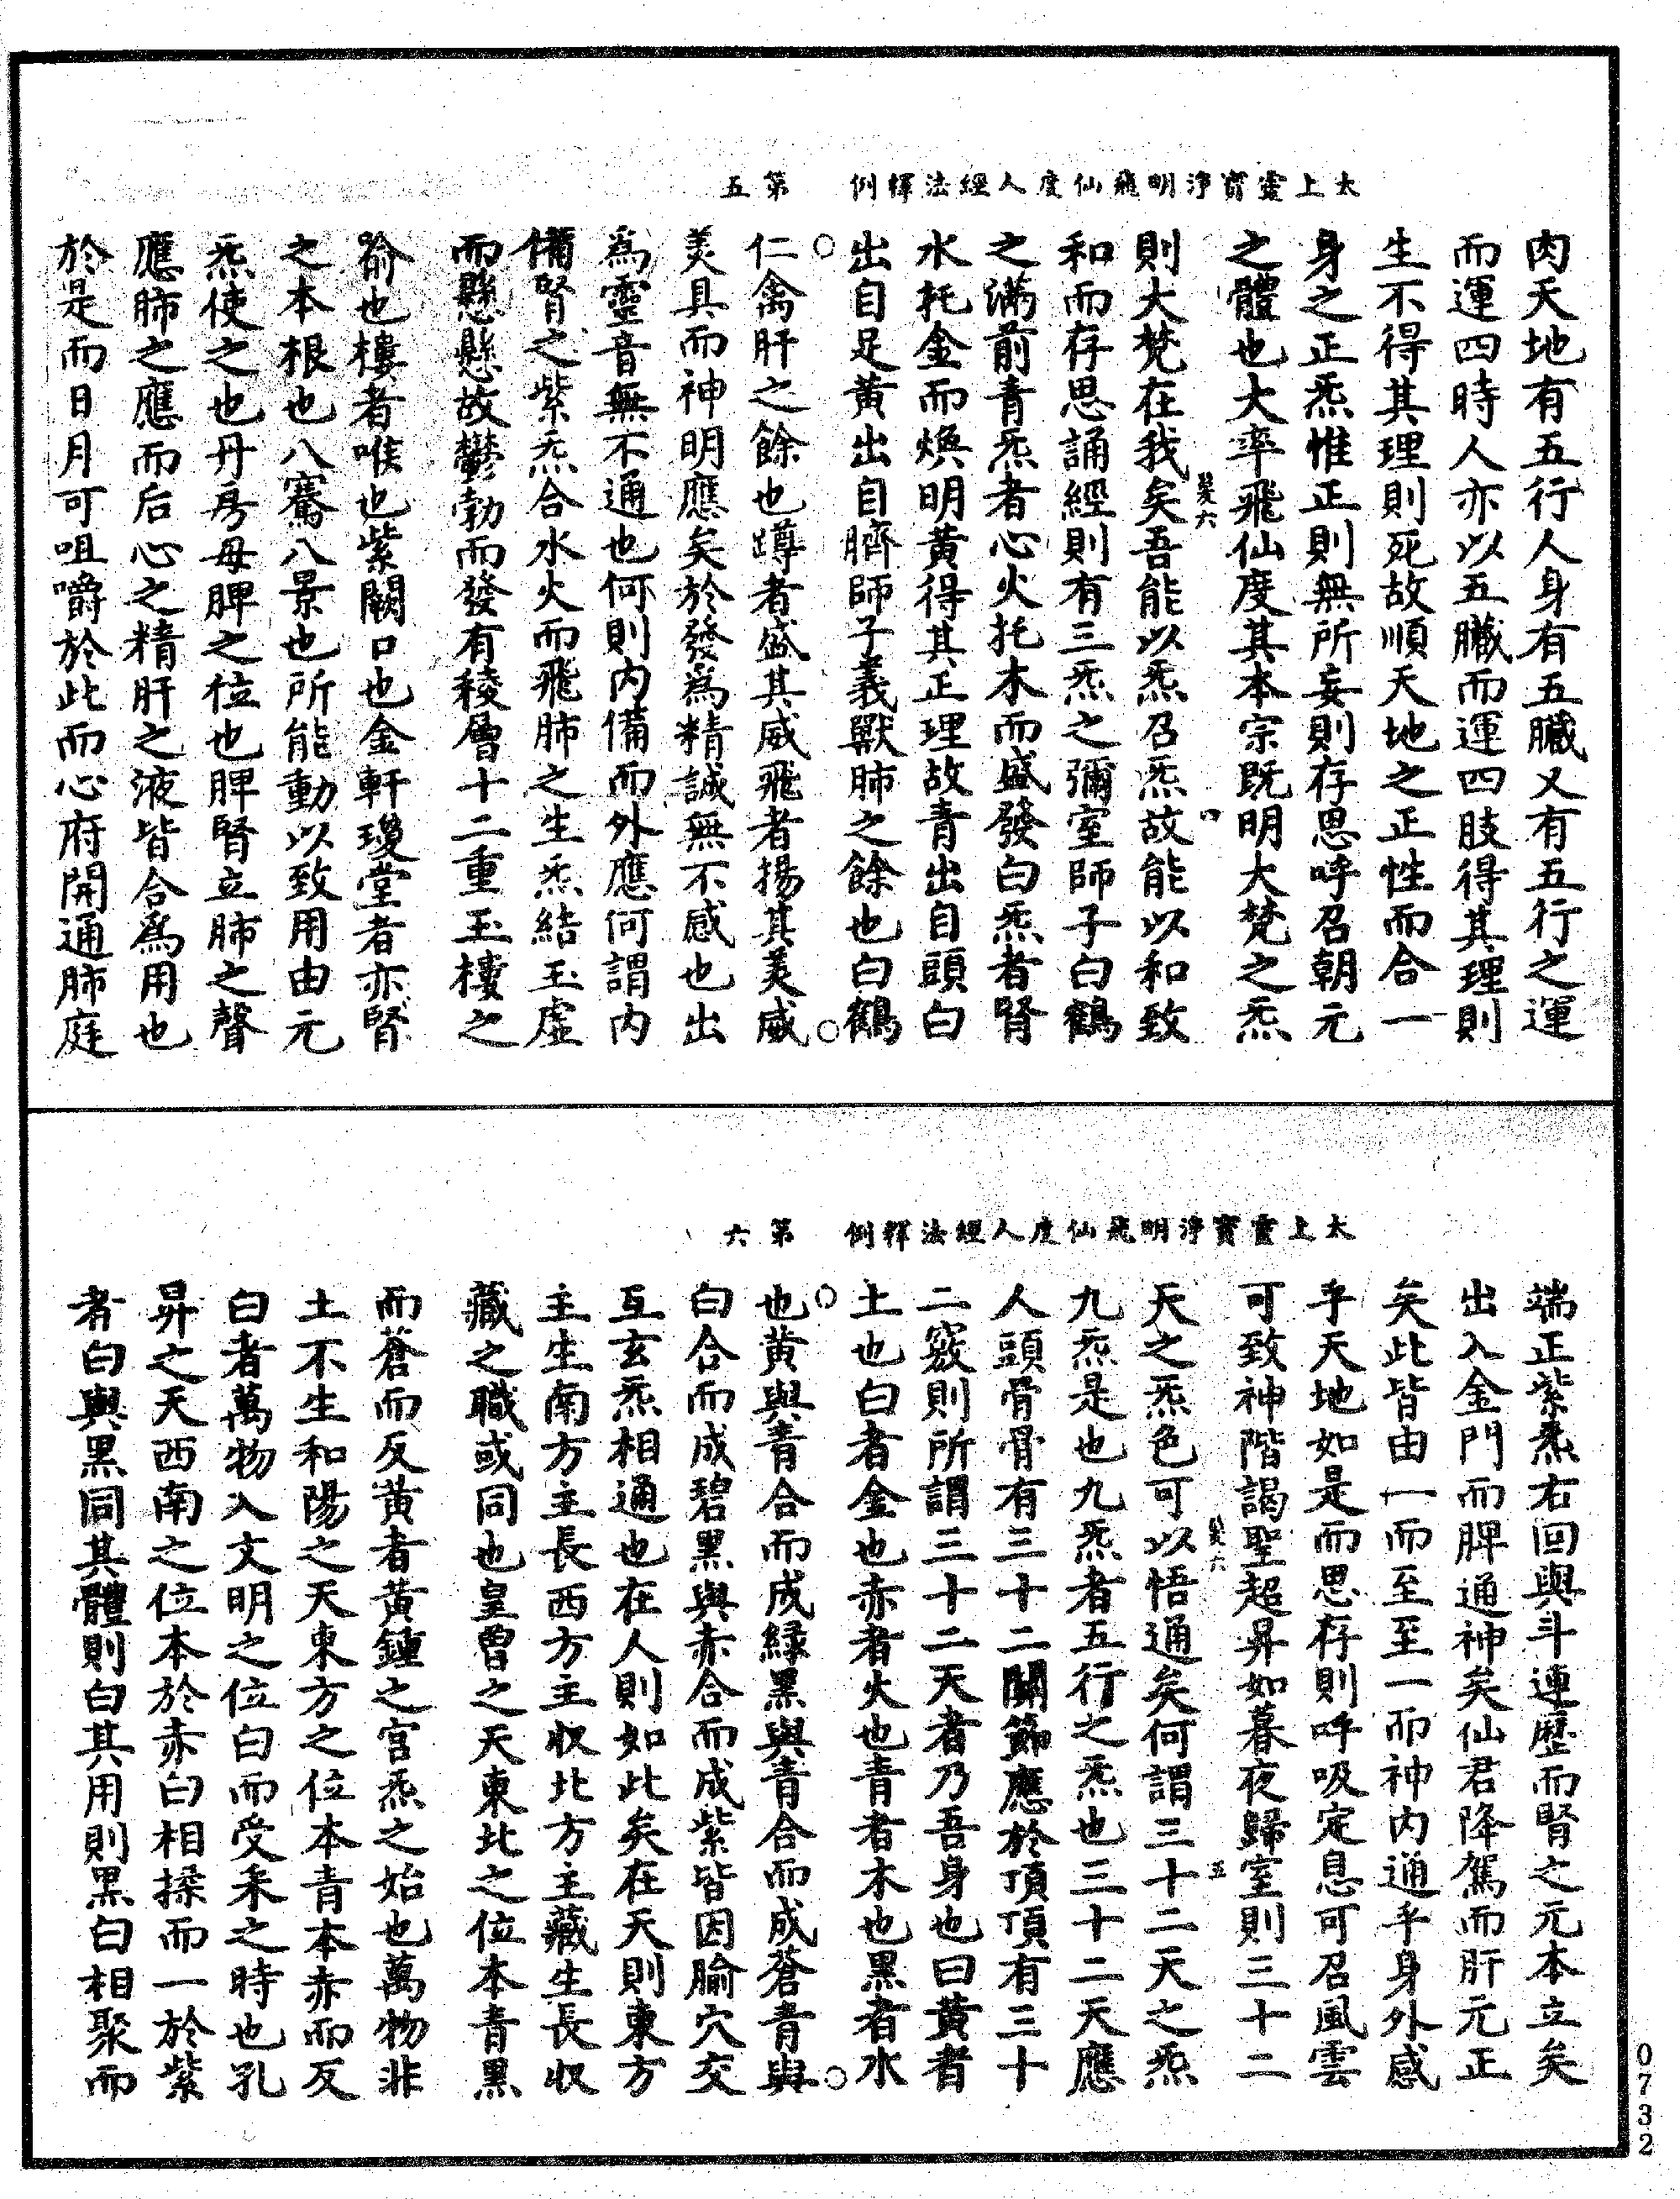 太上靈寶淨明飛仙度人經法釋例　第五
肉天地有五行人身有五臟又有五行之運
而運四時人亦以五臟而運四肢得其理則
生不得其理則死故順天地之正性而合一
身之正炁惟正則無所妄則存思呼召朝元
之體也大率飛仙度其本宗既明大梵之炁
則大梵在我矣吾能以炁召炁故能以和致
和而存思誦經則有三炁之彌室師子白鶴
之滿前青炁者心火托木而盛發白炁者腎
水托金而煥明黃得其正理故青出自頭白
出自足黃出自臍師子義獸肺之餘也白鶴
仁禽肝之餘也蹲者盛其威飛者揚其美威
美具而神明應矣於發為精誠無不感也出
為靈音無不通也何則內備而外應何謂內
備腎之紫炁合水火而飛肺之生炁結玉虛
而懸懸故鬱勃而發有稜層十二重玉樓之
喻也樓者喉也紫闕口也金軒瓊堂者亦腎
之本根也八騫八景也所能動以致用由元
炁使之也丹房母脾之位也脾腎立肺之聲
應肺之應而后心之精肝之液皆合為用也
於是而日月可咀嚼於此而心府開通肺庭
太上靈寶淨明飛仙度人經法釋例　第六
端正紫炁右回與斗連歷而腎之元本立矣
出入金門而脾通神矣仙君降駕而肝元正
矣此皆由一而至至一而神內通乎身外感
乎天地如是而思存則呼吸定息可召風雲
可致神階謁聖超昇如暮夜歸室則三十二
天之炁色可以悟通矣何謂三十二天之炁
九炁是也九炁者五行之炁也三十二天應
人頭骨骨有三十二關節應於頂頂有三十
二竅則所謂三十二天者乃吾身也曰黃者
土也白者金也赤者火也青者木也黑者水
也黃與青合而成綠黑與青合而成蒼青與
白合而成碧黑與赤合而成紫皆因腧穴交
互玄炁相通也在人則如此矣在天則東方
主生南方主長西方主收北方主藏生長收
藏之職或同也皇曾之天東北之位本青黑
而蒼而反黃者黃鍾之宮炁之始也萬物非
土不生和陽之天東方之位本青本赤而反
白者萬物入文明之位白而受采之時也孔
昇之天西南之位本於赤白相揉而一於紫
者白與黑同其體則白其用則黑白相聚而
0732